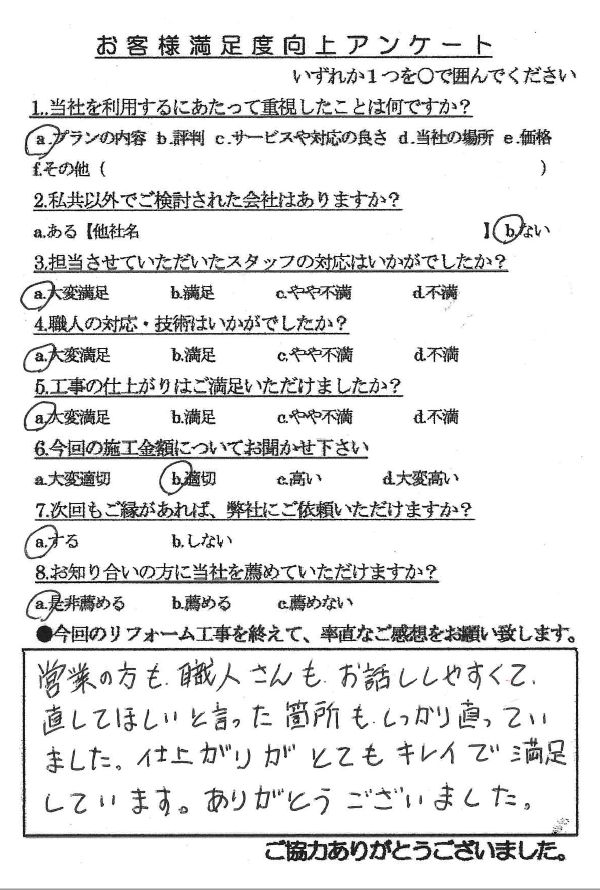 お客様満足度向上アンケート
いずれか１つを〇で囲んでください
1..当社を利用するにあたって重視したことは何ですか？
a.プランの内容 b.評判 c.サービスや対応の良さ d.当社の場所 e.価格
f.その他（ ）
2.私共以外でご検討された会社はありますか？
a.ある【他社名 】b.ない
3.担当させていただいたスタッフの対応はいかがでしたか？
a.大変満足 b.満足 c.やや不満 d.不満
4.職人の対応・技術はいかがでしたか？
a.大変満足 b.満足 c.やや不満 d.不満
5.工事の仕上がりはご満足いただけましたか？
a.大変満足 b.満足 c.やや不満 d.不満
6.今回の施工金額についてお聞かせ下さい
a.大変適切 b.適切 c.高い d.大変高い
7.次回もご縁があれば、弊社にご依頼いただけますか？
a.する b.しない
8.お知り合いの方に当社を薦めていただけますか？
a.是非薦める b.薦める c.薦めない
●今回のリフォーム工事を終えて、率直なご感想をお願い致します。
営業の方も、職人さんも、お話ししやすくて、
直してほしいと言った箇所も、しっかり直ってい
ました。仕上がりがとてもキレイで満足
しています。ありがとうございました。
ご協力ありがとうございました。